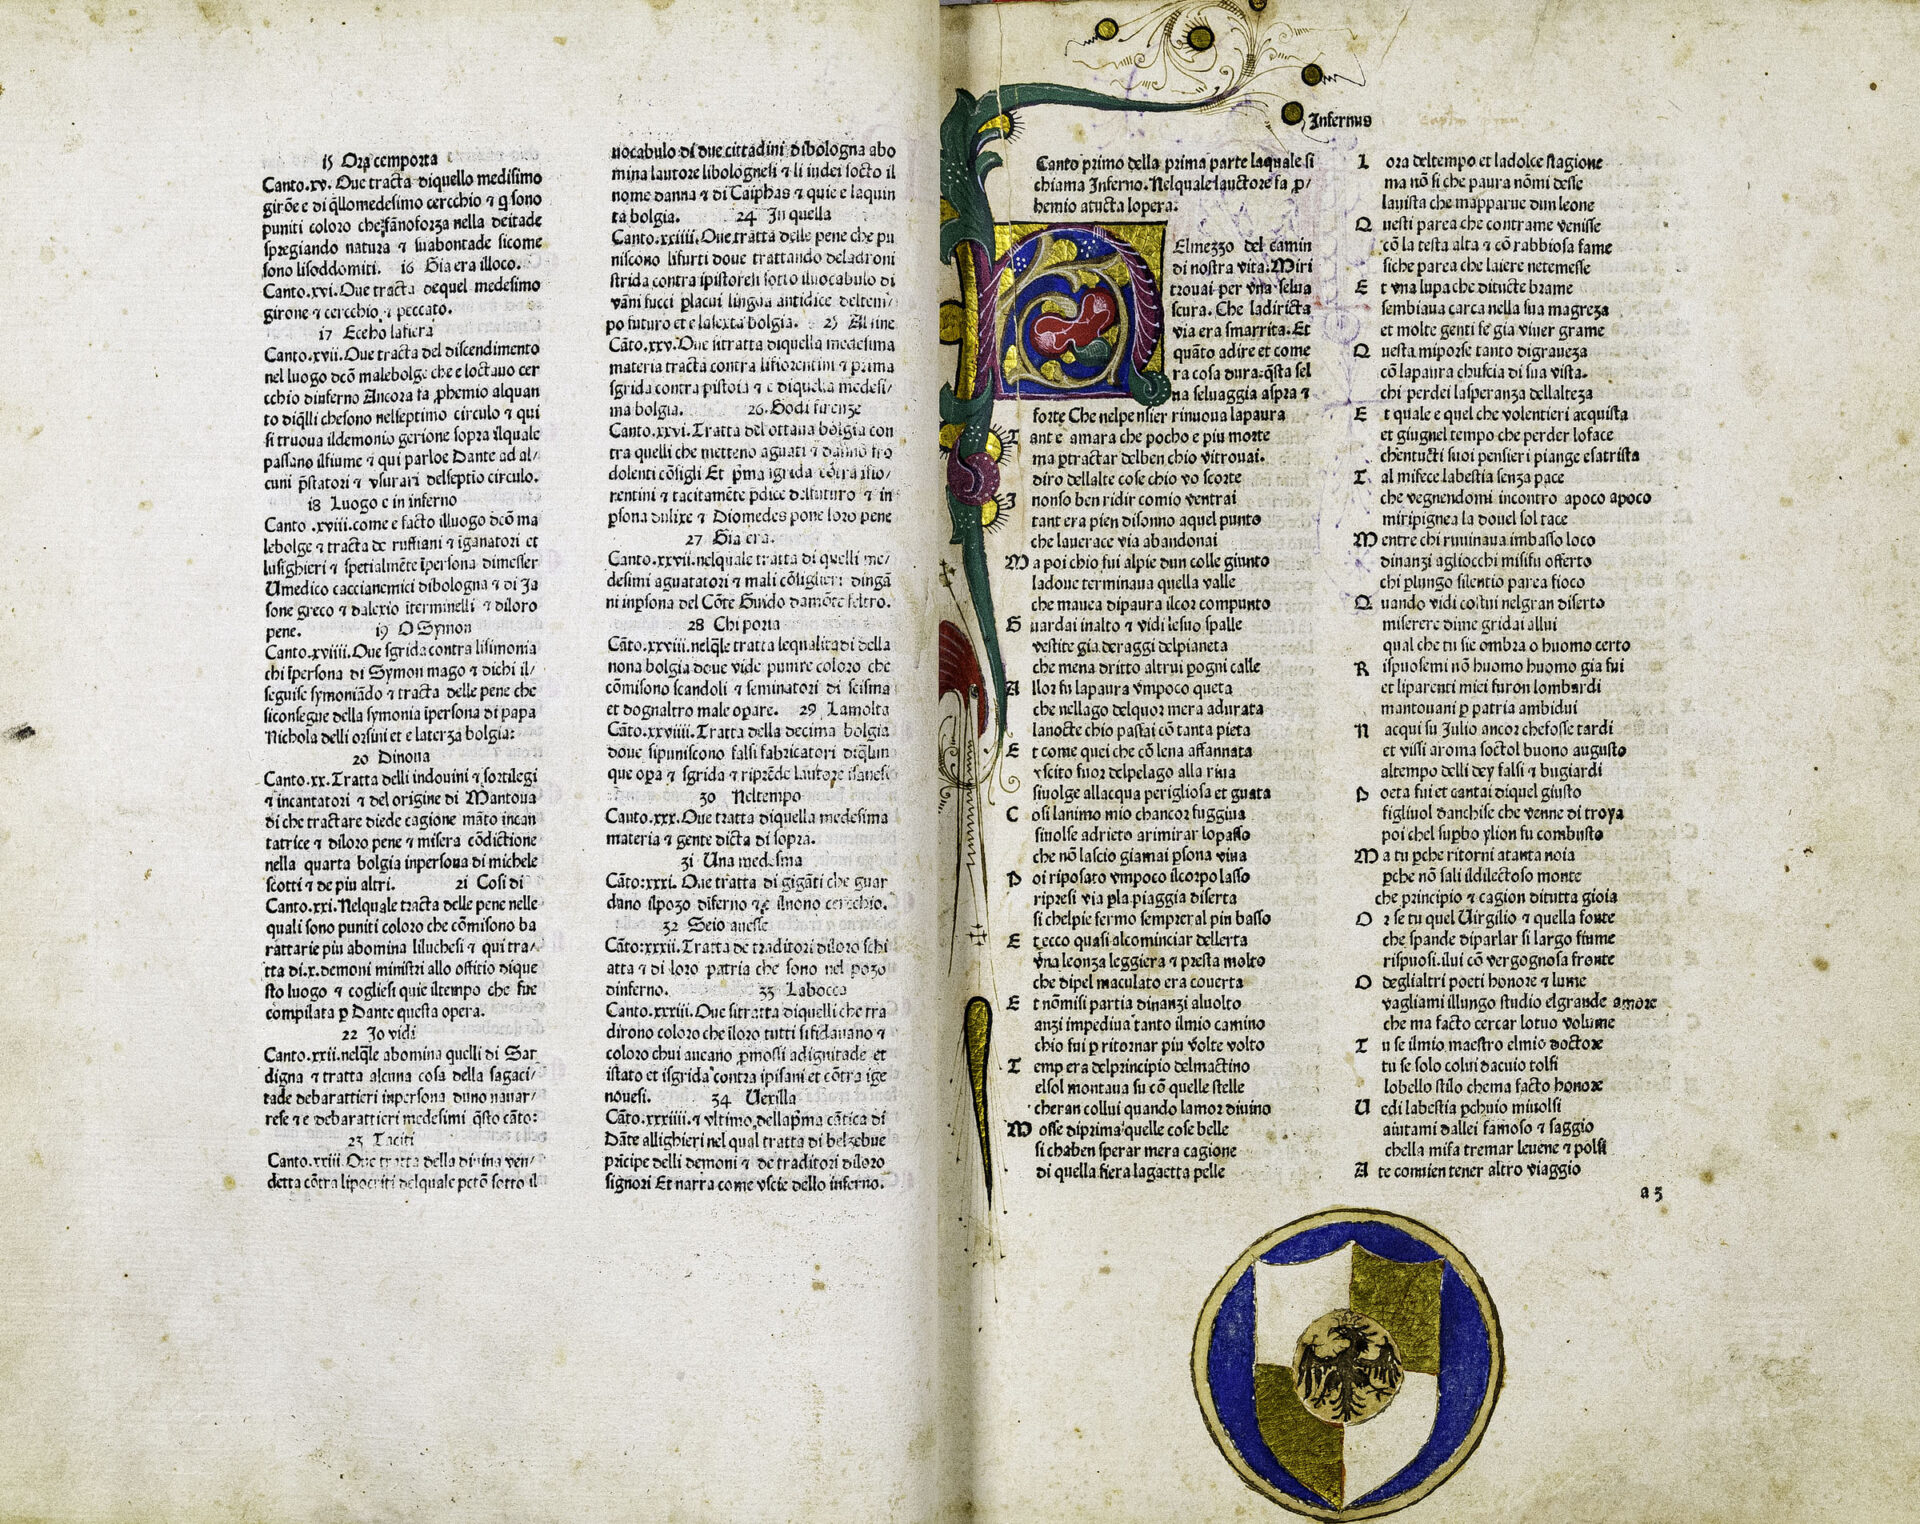 15 Ora cemporta
Canto.xv. Oue tracta diquello medisimo
girōe e di q̄llomedesimo cercchio ⁊ q̄ sono
puniti coloro che fānoforza nella deitade
spregiando natura ⁊ suabontade sicome
sono lisoddomiti. 16 Gia era illoco.
Canto.xvi. Oue tracta dequel medesimo
girone ⁊ cercchio ⁊ peccato.
17 Eccho lafiera
Canto.xvii. Oue tracta del discendimento
nel luogo dcō malebolge che e loctauo cer
cchio dinferno Ancora fa ꝓhemio alquan
to diq̄lli chesono nelseptimo circulo ⁊ qui
si truoua ildemonio gerione sopra ilquale
passano ilfiume ⁊ qui parloe Dante ad al/
cuni p̄statori ⁊ vsurari delseptio circulo.
18 Luogo e in inferno
Canto .xviii.come e facto illuogo dcō ma
lebolge ⁊ tracta de ruffiani ⁊ īganatori et
lusighieri ⁊ spetialmēte īpersona dimesser
Umedico caccianemici dibologna ⁊ di Ja
sone greco ⁊ dalexio īterminelli ⁊ diloro
pene. 19 O Symon
Canto.xviiii. Oue sgrida contra lisimonia
chi īpersona di Symon mago ⁊ dichi il/
seguise symoniādo ⁊ tracta delle pene che
siconsegue della symonia īpersona di papa
Nichola delli orsini et e laterza bolgia:
20 Dinoua
Canto.xx. Tratta delli indouini ⁊ sortilegi
⁊ incantatori ⁊ del origine di Mantoua
di che tractare diede cagione māto incan
tatrice ⁊ diloro pene ⁊ misera cōdictione
nella quarta bolgia inpersona di michele
scotti ⁊ de piu altri. 21 Cosi di
Canto.xxi. Nelquale tracta delle pene nelle
quali sono puniti coloro che cōmisono ba
rattarie piu abomina liluchesi ⁊ qui tra/
tta di.x.demoni ministri allo offitio dique
sto luogo ⁊ cogliesi quie iltempo che fue
compilata ꝑ Dante questa opera.
22 Jo vidi
Canto.xxii.nelq̄le abomina quelli di Sar
digna ⁊ tratta alcuna cosa della sagaci/
tade debarattieri inpersona duno nauar/
rese ⁊ e debarattieri medesimi q̄sto cāto:
23 Taciti
Canto.xxiii. Oue tratta della diuina ven/
detta cōtra lipocriti delquale pctō sotto il
uocabulo di due cittadini dibologna abo
mina lautore libolognesi ⁊ li iudei socto il
nome danna ⁊ di Caiphas ⁊ quie e laquin
ta bolgia. 24 In quella
Canto.xxiiii. Oue tratta delle pene che pu
niscono lifurti doue trattando deladroni
strida contra ipistoresi sotto iluocabulo di
vāni fucci ꝑ lacui lingua antidice deltem/
po futuro et e lasexta bolgia. 25 Al fine
Cāto.xxv. Oue sitratta diquella medesima
materia tracta contra lifiorentini ⁊ prima
sgrida contra pistoia ⁊ e diquella medesi/
ma bolgia. 26. Godi firenze
Canto.xxvi. Tratta del ottaua bolgia con
tra quelli che metteno aguati ⁊ danno fro
dolenti cōsigli Et p̄ma sgrida cōtra ifio/
rentini ⁊ tacitamēte p̄dice delfuturo ⁊ in
ꝑsona dulixe ⁊ Diomedes pone loro pene
27 Gia era.
Canto.xxvii.nelquale tratta di quelli me/
desimi aguatatori ⁊ mali cōsiglieri dingā
ni inꝑsona del Cōte Guido damōte feltro.
28 Chi poria
Cāto.xxviii.nelq̄le tratta lequalitadi della
nona bolgia doue vide punire coloro che
cōmisono scandoli ⁊ seminatori di scisma
et dognaltro male oꝑare. 29 Lamolta
Cāto.xxviiii. Tratta della decima bolgia
doue sipuniscono falsi fabricatori diq̄lun
que oꝑa ⁊ sgrida ⁊ riprēde lautore isanesi
30 Neltempo
Canto.xxx. Oue tratta diquella medesima
materia ⁊ gente dicta di sopra.
31 Una medesma
Cāto:xxxi. Oue tratta di gigāti che guar
dano ilpozo diferno ⁊ e ilnono cercchio.
32 Seio auesse
Cāto:xxxii. Tratta de traditori diloro schi
atta ⁊ di loro patria che sono nel pozo
dinferno. 33 Labocca
Canto.xxxiii. Oue sitratta diquelli che tra
dirono coloro che īloro tutti sifidauano ⁊
coloro chui aueano ꝓmossi adignitade et
istato et isgrida contra ipisani et cōtra ige
nouesi. 34 Uexilla
Cāto.xxxiiii.⁊ vltimo dellap̄ma cātica di
Dāte allighieri nel qual tratta di belzebue
p̄ricipe delli demoni ⁊ de traditori diloro
signori Et narra come vscie dello inferno.
Infernus
Canto primo della prima parte laquale si
chiama Inferno. Nelquale lauctore fa ꝓ/
hemio atucta lopera.
Elmezzo del camin
di nostra vita. Miri
trouai per vna selua
scura. Che ladiricta
via era smarrita. Et
quāto adire et come
ra cosa dura:q̄sta sel
ua seluaggia aspra ⁊
forte Che nelpensier rinuoua lapaura
Tante amara che pocho e piu morte
ma ꝑtractar delben chio vitrouai.
diro dellalte cose chio vo scorte
I nonso ben ridir comio ventrai
tant era pien disonno aquel punto
che lauerace via abandonai
M a poi chio fui alpie dun colle giunto
ladoue terminaua quella valle
che mauea dipaura ilcor compunto
G uardai inalto ⁊ vidi lesuo spalle
vestite gia deraggi delpianeta
che mena dritto altrui ꝑogni calle
A llor fu lapaura vmpoco queta
che nellago delquor mera adurata
lanocte chio passai cō tanta pieta
E t come quei che cō lena affannata
vscito fuor delpelago alla riua
siuolge allacqua perigliosa et guata
C osi lanimo mio chancor fuggiua
siuolse adrieto arimirar lopasso
che nō lascio giamai ꝑsona viua
P oi riposato vmpoco ilcorpo lasso
ripresi via ꝑla piaggia diserta
si chelpie fermo sempreral piu basso
E tecco quasi alcominciar dellerta
vna leonza leggiera ⁊ presta molto
che dipel maculato era couerta
E t nōmisi partia dinanzi aluolto
anzi impediua tanto ilmio camino
chio fui ꝑ ritornar piu volte volto
T emp era delprincipio delmactino
elsol montaua su cō quelle stelle
cheran collui quando lamor diuino
M osse diprima quelle cose belle
si chaben sperar mera cagione
di quella fiera lagaetta pelle
L ora deltempo et ladolce stagione
ma nō si che paura nōmi desse
lauista che mapparue dun leone
Q uesti parea che contrame venisse
cō la testa alta ⁊ cō rabbiosa fame
siche parea che laiere netemesse
E t vna lupa che ditucte brame
sembiaua carca nella sua magreza
et molte genti fe gia viuer grame
Q uesta miporse tanto digraueza
cō lapaura chuscia di sua vista.
chi perdei lasperanza dellalteza
E t quale e quel che volentieri acquista
et giugnel tempo che perder loface
chentucti suoi pensieri piange esatrista
T al mifece labestia senza pace
che vegnendomi incontro apoco apoco
miripignea la douel sol tace
M entre chi ruuinaua imbasso loco
dinanzi agliocchi misifu offerto
chi ꝑ lungo silentio parea fioco
Q uando vidi costui nelgran diserto
miserere dime gridai allui
qual che tu sie ombra o huomo certo
R ispuosemi nō huomo huomo gia fui
et liparenti miei furon lombardi
mantouani ꝑ patria ambidui
N acqui su Julio ancor chefosse tardi
et vissi aroma soctol buono augusto
altempo delli dey falsi ⁊ bugiardi
P oeta fui et cantai diquel giusto
figliuol danchise che venne di troya
poi chel suꝑbo ylion fu combusto
M a tu ꝑche ritorni atanta noia
ꝑche nō sali ildilectoso monte
che principio ⁊ cagion ditutta gioia
O r se tu quel Uirgilio ⁊ quella fonte
che spande diparlar si largo fiume
rispuosi.ilui cō vergognosa fronte
O deglialtri poeti honore ⁊ lume
vagliami illungo studio elgrande amore
che ma facto cercar lotuo volume
T u se ilmio maestro elmio doctore
tu se solo colui dacuio tolsi
lobello stilo chema facto honore
U edi labestia ꝑchuio miuolsi
aiutami dallei famoso ⁊ saggio
chella mifa tremar leuene ⁊ polsi
A te conuien tener altro viaggio
a 3